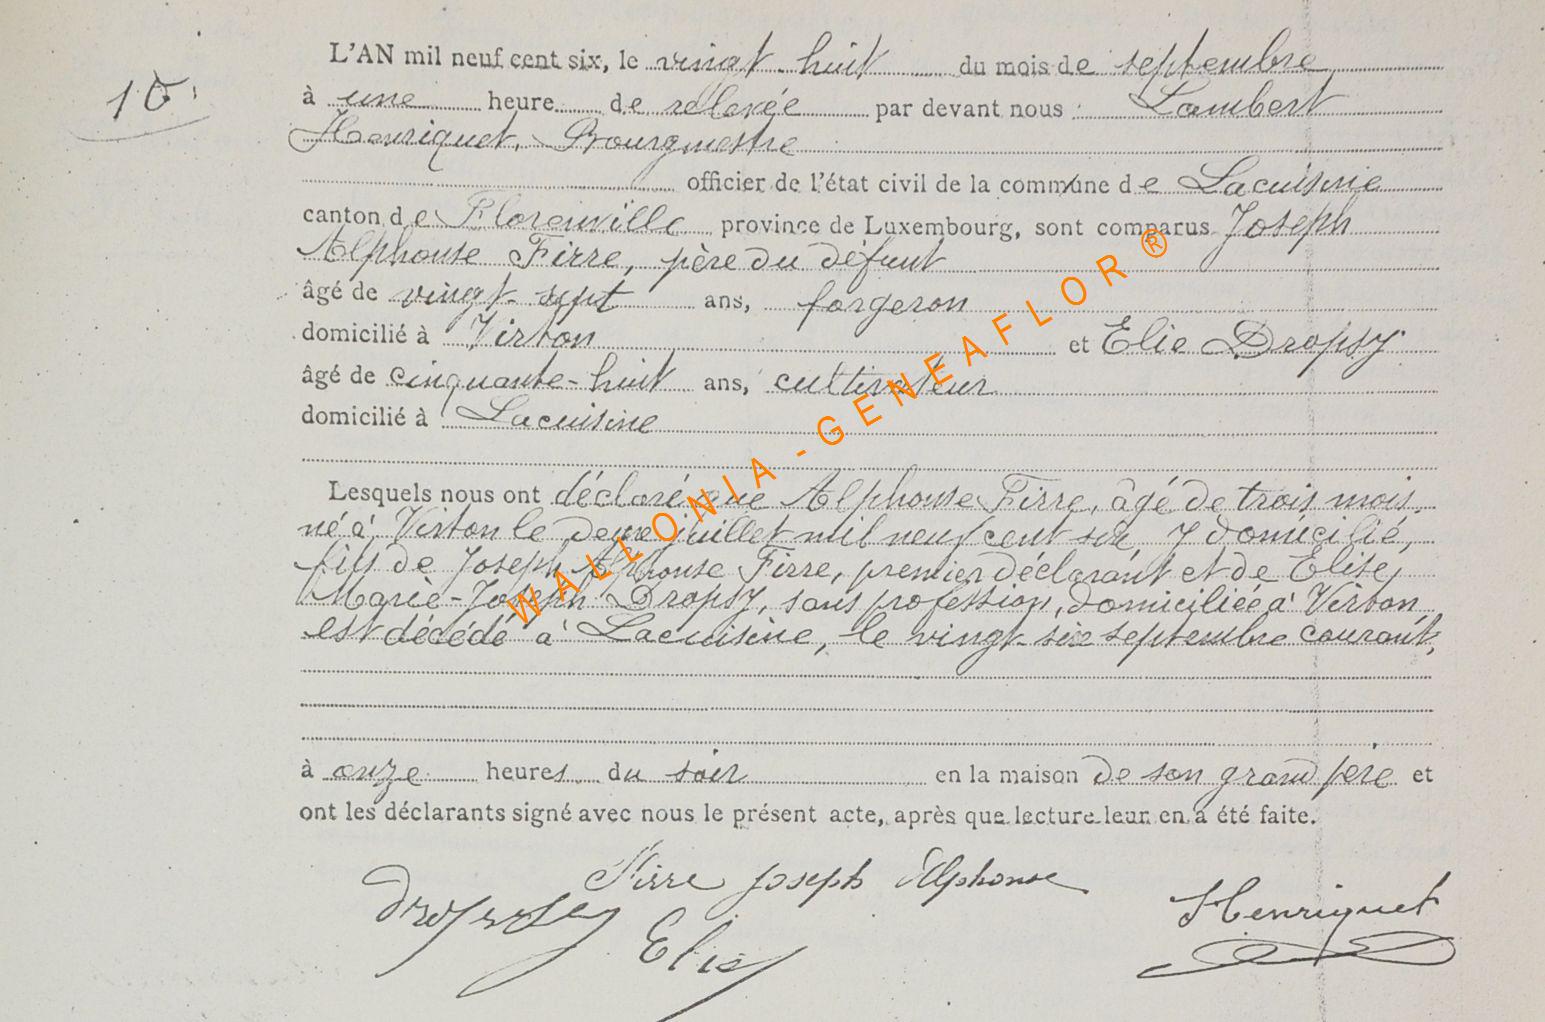 10.
L'AN mil neuf cent six, le vingt-huit du mois de septembre
à une heure de relevée par devant nous Lambert
Henriquet, Bourgmestre
officier de l'état civil de la commune de Lacuisine
canton de Florenville province de Luxembourg, sont comparus Joseph
Alphonse Firre, père du défunt
âgé de vingt-sept ans, forgeron
domicilié à Virton et Elie Dropsy
âgé de cinquante-huit ans, cultivateur
domicilié à Lacuisine
Lesquels nous ont déclaré que Alphonse Firre, âgé de trois mois
né à Virton le deux juillet mil neuf cent six, y domicilié,
fils de Joseph Alphonse Firre, premier déclarant et de Elise,
Marie-Joseph Dropsy, sans profession, domiciliée à Virton,
est décédé à Lacuisine, le vingt-six septembre courant,
à onze heures du soir en la maison de son grand père et
ont les déclarants signé avec nous le présent acte, après que lecture leur en a été faite.
Firre Joseph Alphonse
Dropsy Elie
Henriquet
WALLONIA - GENEAFLOR ®